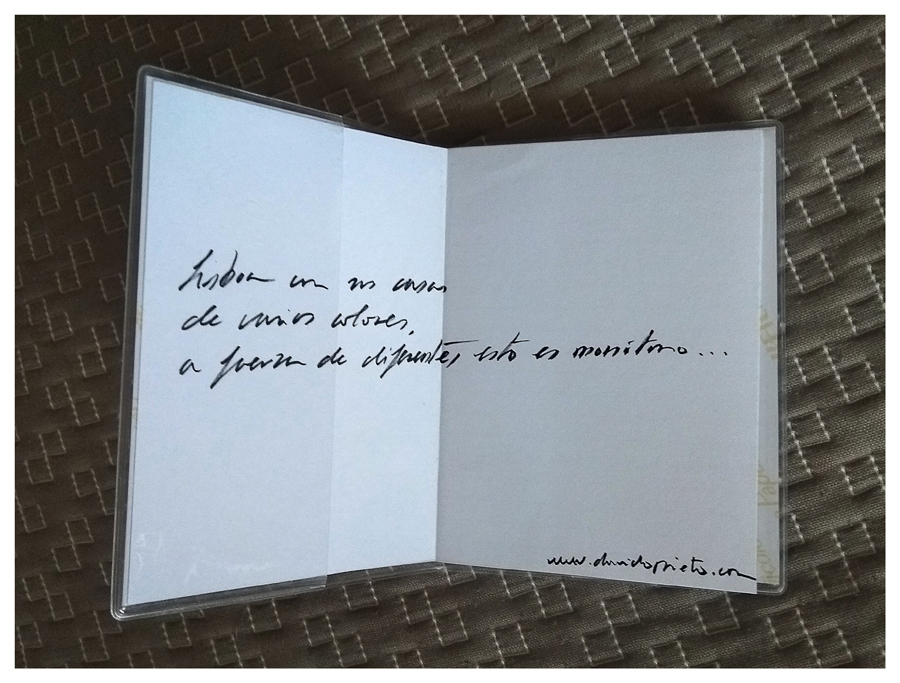 Lisboa con sus casas
de varios colores,
a fuerza de diferentes, esto es monótono...
www.davidoprieto.com